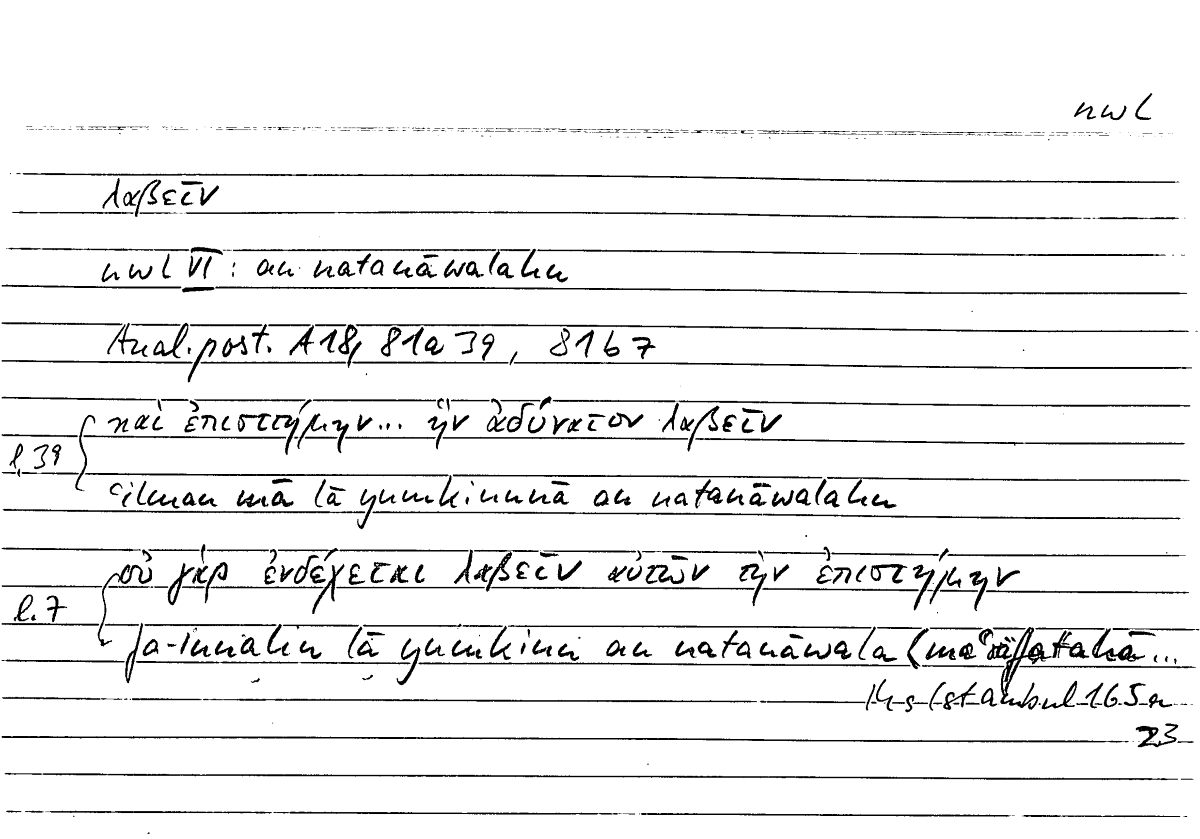 nwl
λαβεῖν
nwl VI : an natanāwalahu
Anal. post. A 18, 81a 39, 81 b 7
καὶ ἐπιστήμην... ἣν ἀδύνατον λαβεῖν
l. 39
ʿilman mā lā yumkinunā an natanāwalahu
οὐ γὰρ ἐνδέχεται λαβεῖν αὐτῶν τὴν ἐπιστήμην
l. 7
fa-innahu lā yumkinu an natanāwala (maʿrifatahā...
Hs Istanbul 165a
23